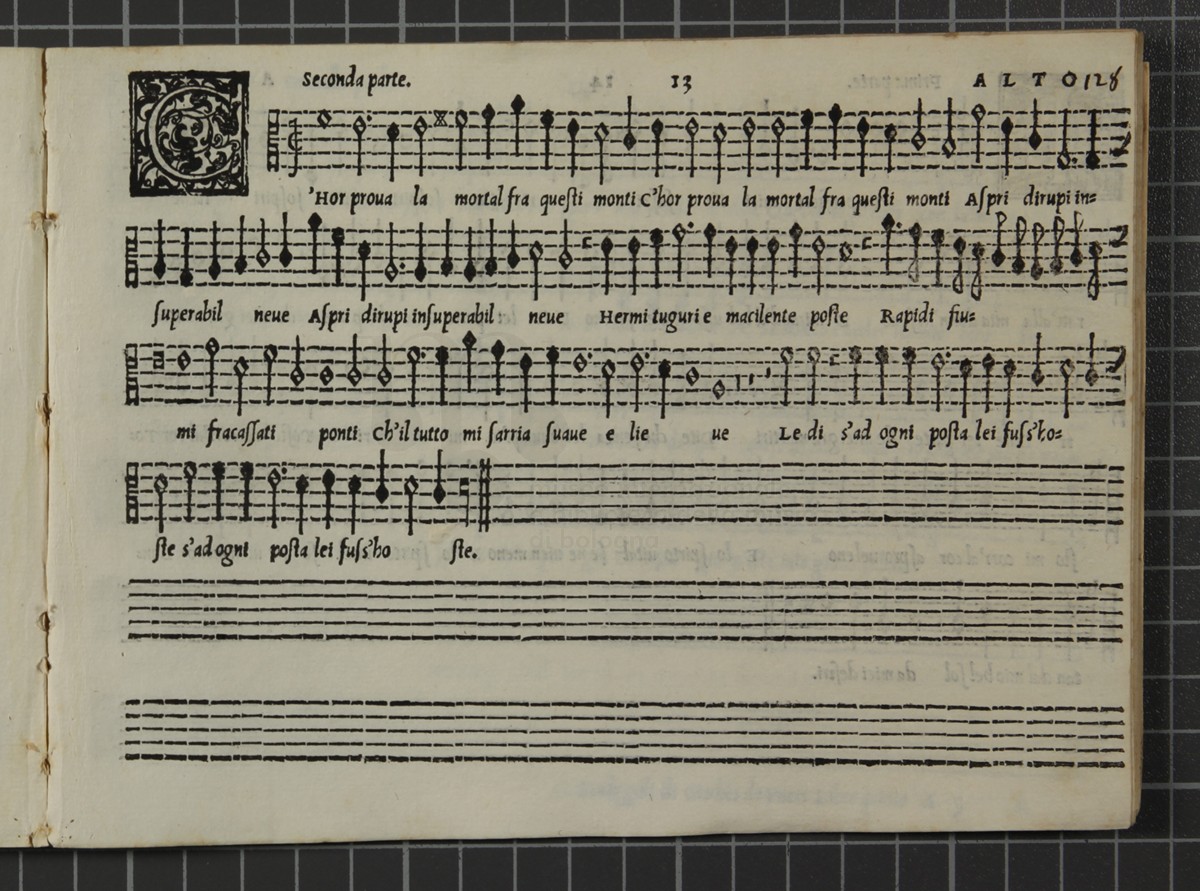 Seconda parte. 13 ALTO 128
C'Hor proua la mortal fra queſti monti C'hor proua la mortal fra queſti monti Aſpri dirupi in=
ſuperabil neue Aſpri dirupi inſuperabil neue Hermi tuguri e macilente poſte Rapidi fiu=
mi fracaſſati ponti Ch'il tutto mi ſarria ſuaue e lie ue Le di s'ad ogni poſta lei fuſs'ho=
ſte s'ad ogni poſta lei fuſs'ho ſte.
di bologna